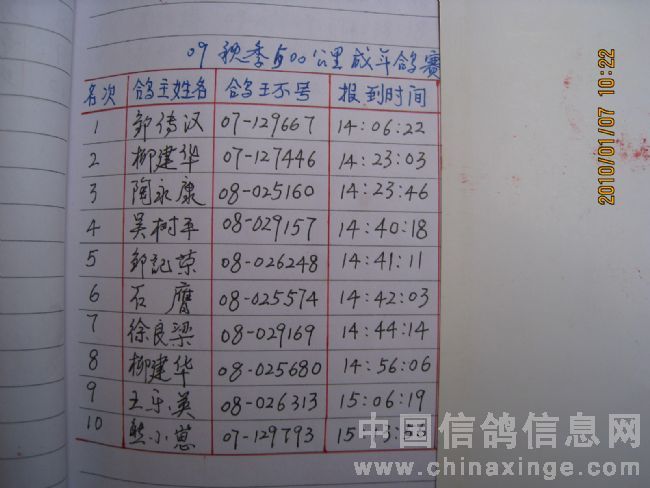 09 秋季500公里成年鸽赛
名次 鸽主姓名 鸽王环号 报到时间
1 邹传汉 07-129667 14:06:22
2 柳建华 07-127446 14:23:03
3 陶永康 08-025160 14:23:46
4 吴树平 08-029157 14:40:18
5 邹記琼 08-026248 14:41:11
6 石鹰 08-025574 14:42:03
7 徐良梁 08-029169 14:44:14
8 柳建华 08-025680 14:56:06
9 王乐英 08-026313 15:06:19
10 熊小崽 07-129793
2010/01/07 10:22
中国信鸽信息网
www.chinaxinge.com